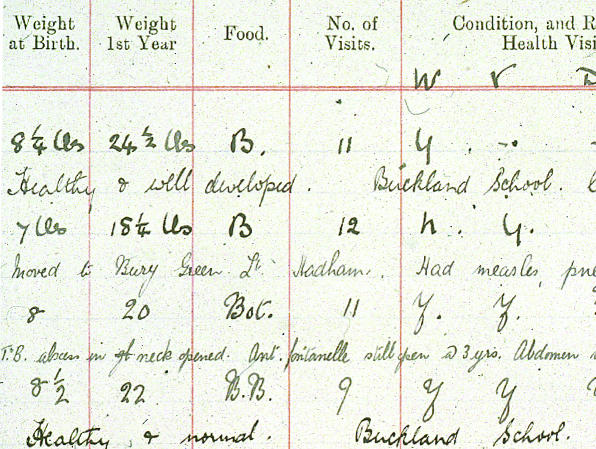 Weight at Birth. Weight 1st Year Food. No. of Visits. Condition, and R
Health Visi
W V D
8¼ lbs 24½ lbs B. 11 y . -.
Healthy & well developed. Buckland School.
7 lbs 18¼ lbs B 12 n. y.
Moved to Bury Green Lt. Hadham. Had measles, pne
8 20 Bot. 11 y. y.
T.B. abscess in gt neck opened. Ant. fontanelle still open @ 3 yrs. Abdomen
8½ 22 B.B. 9 y y
Healthy & normal. Buckland School.